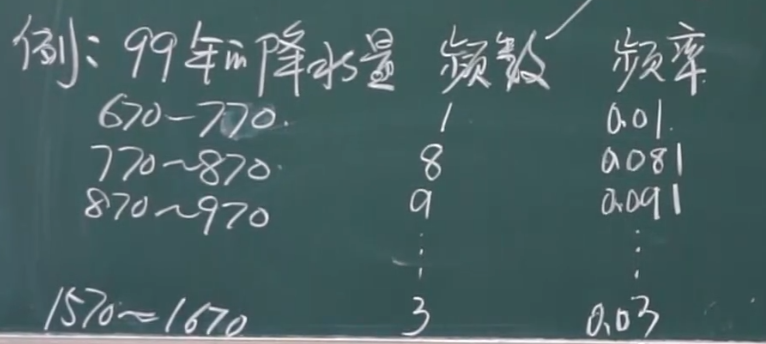 例：99年的降水量 频数 频率
670-770. 1 0.01.
770~870. 8 0.081
870~970 9 0.091
⋮ ⋮
1570~1670 3 0.03